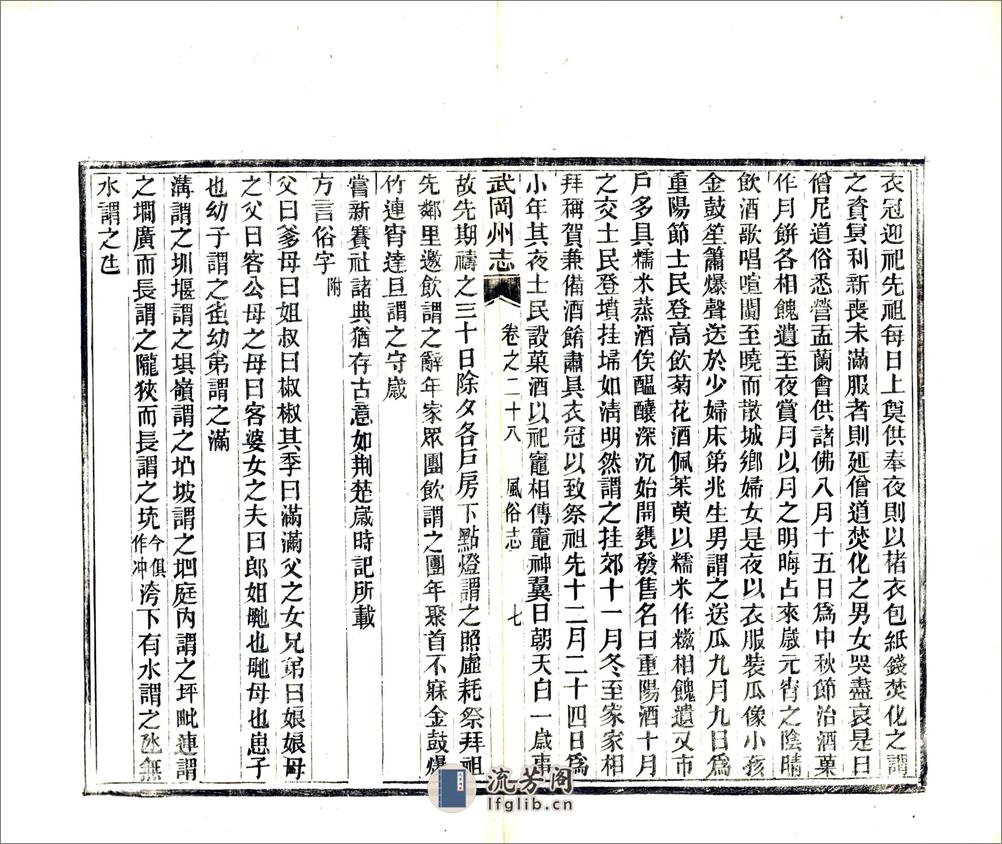 衣冠迎祀先祖每日上奠供奉夜則以楮衣包紙錢焚化之謂
之資冥利新喪未滿服者則延僧道焚化之男女哭盡哀是日
僧尼道俗悉營盂蘭會供諸佛八月十五日爲中秋節治酒菓
作月餅各相餽遺至夜賞月以月之明晦占來歲元宵之陰晴
飲酒歌唱喧闐至曉而散城鄉婦女是夜以衣服裝瓜像小孩
金鼓笙簫爆聲送於少婦床第兆生男謂之送瓜九月九日爲
重陽節士民登高飲菊花酒佩茱萸以糯米作糍相餽遺又市
戶多具糯米蒸酒俟醞釀深沉始開甕發售名曰重陽酒十月
之交士民登墳挂埽如清明然謂之挂郊十一月冬至家家相
拜稱賀兼備酒餚肅具衣冠以致祭祖先十二月二十四日爲
小年其夜士民設菓酒以祀竈相傳竈神翼日朝天白一歲事
武岡州志
卷之二十八
風俗志
七
故先期禱之三十日除夕各戶房下點燈謂之照虛耗祭拜祖
先鄰里邀飲謂之辭年家眾團飲謂之團年聚首不寐金鼓爆
竹連宵達旦謂之守歲
嘗新賽社諸典猶存古意如荆楚歲時記所載
方言俗字附
父曰爹母曰姐叔曰椒椒其季曰滿滿父之女兄弟曰娘娘母
之父曰客公母之母曰客婆女之夫曰郎姐毑也毑母也崽子
也幼子謂之㑳幼弟謂之滿
溝謂之圳堰謂之垻嶺謂之坡謂之庭內謂之坪毗連謂
之壛廣而長謂之隴狹而長謂之坈今俱作冲澇下有水謂之氹無
水謂之凼